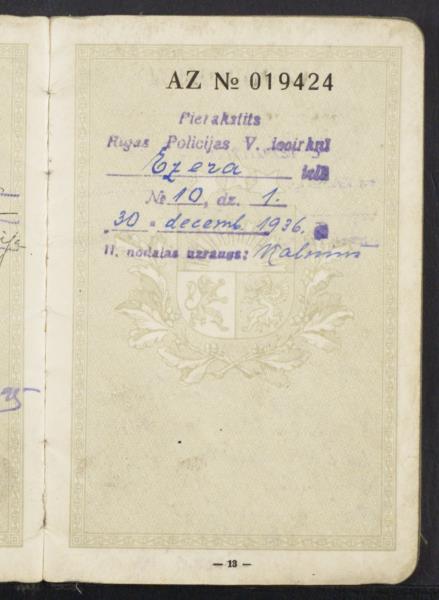 AZ № 019424
Pierakstīts
Rīgas Policijas V. iecirknī
Ezera ielā
№ 10, dz. 1.
30. decemb. 1936.
II. nodaļas uzraugs:
— 13 —